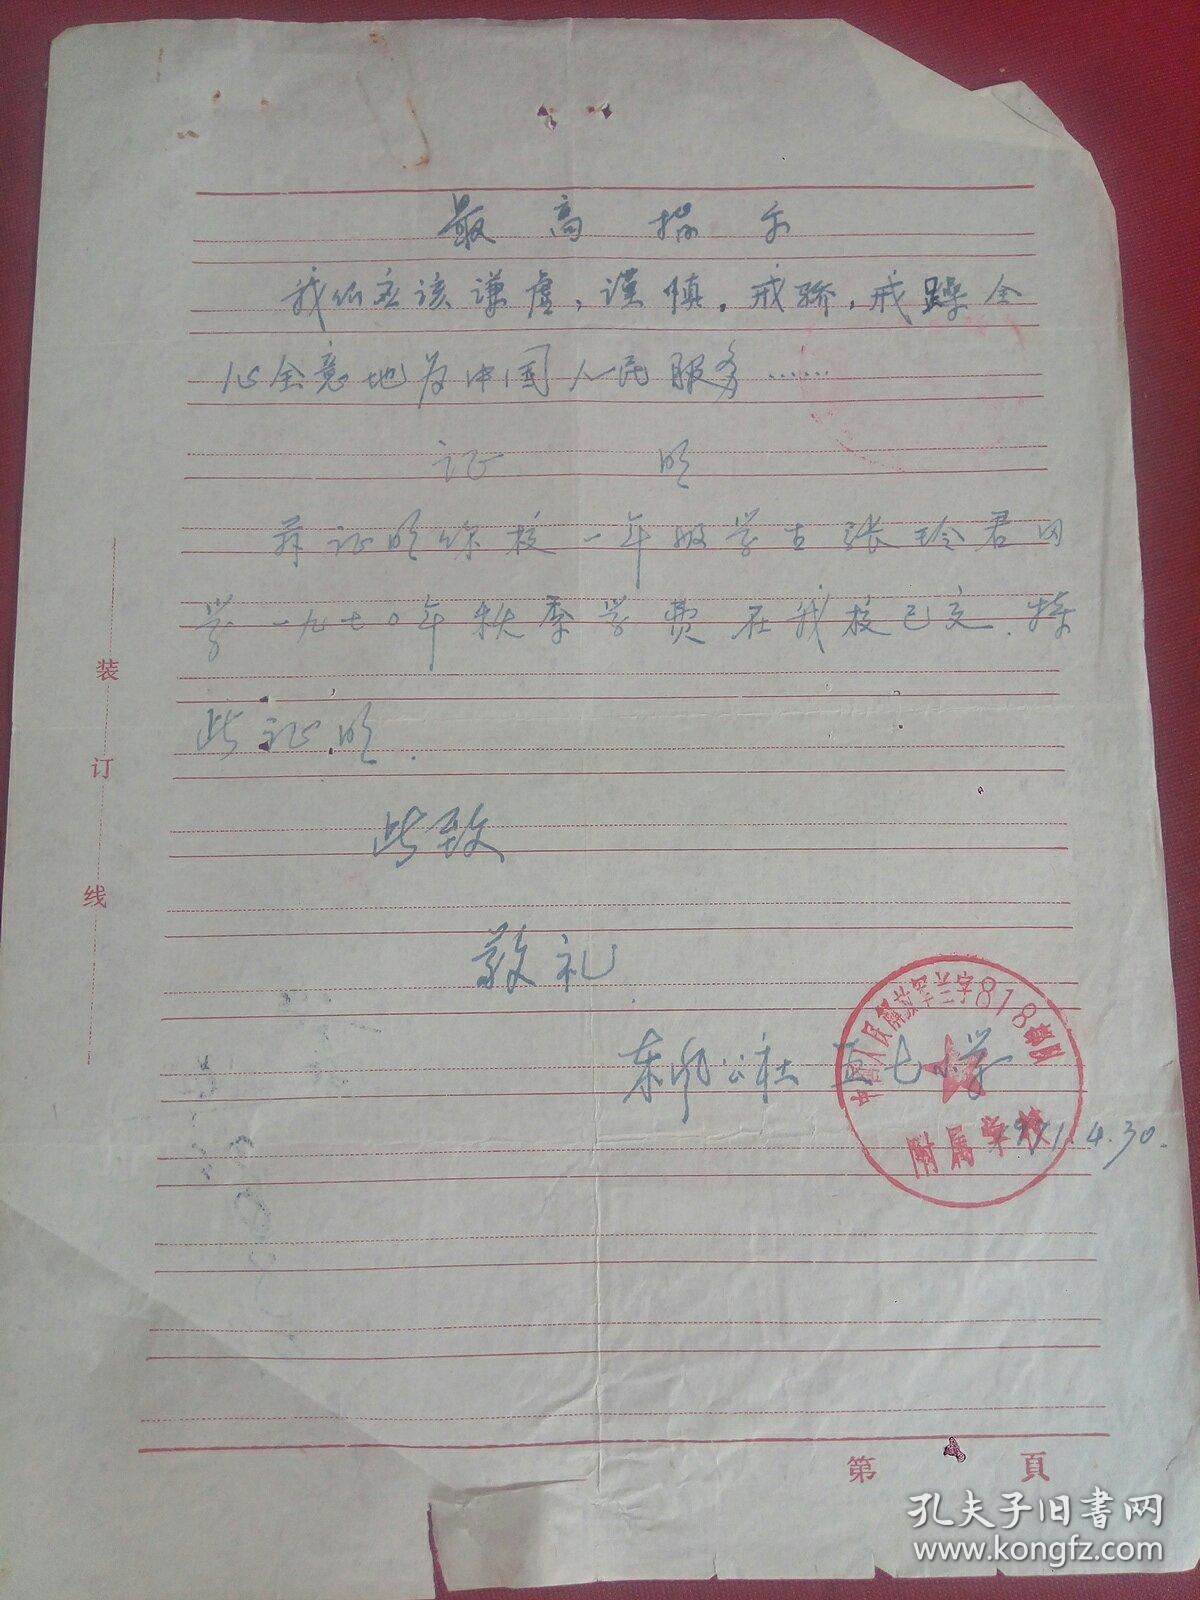 最高指示
我们应该谦虚，谨慎，戒骄，戒躁全
心全意地为中国人民服务……
证 明
兹证明你校一年级学生张玲君同
学一九七〇年秋季学费在我校已交．特
此证明．
此致
敬礼．
公社五七小学
1971.4.30.
中国人民解放军兰字818部队
附属学校
装
订
线
第 頁
孔夫子旧书网
www.kongfz.com